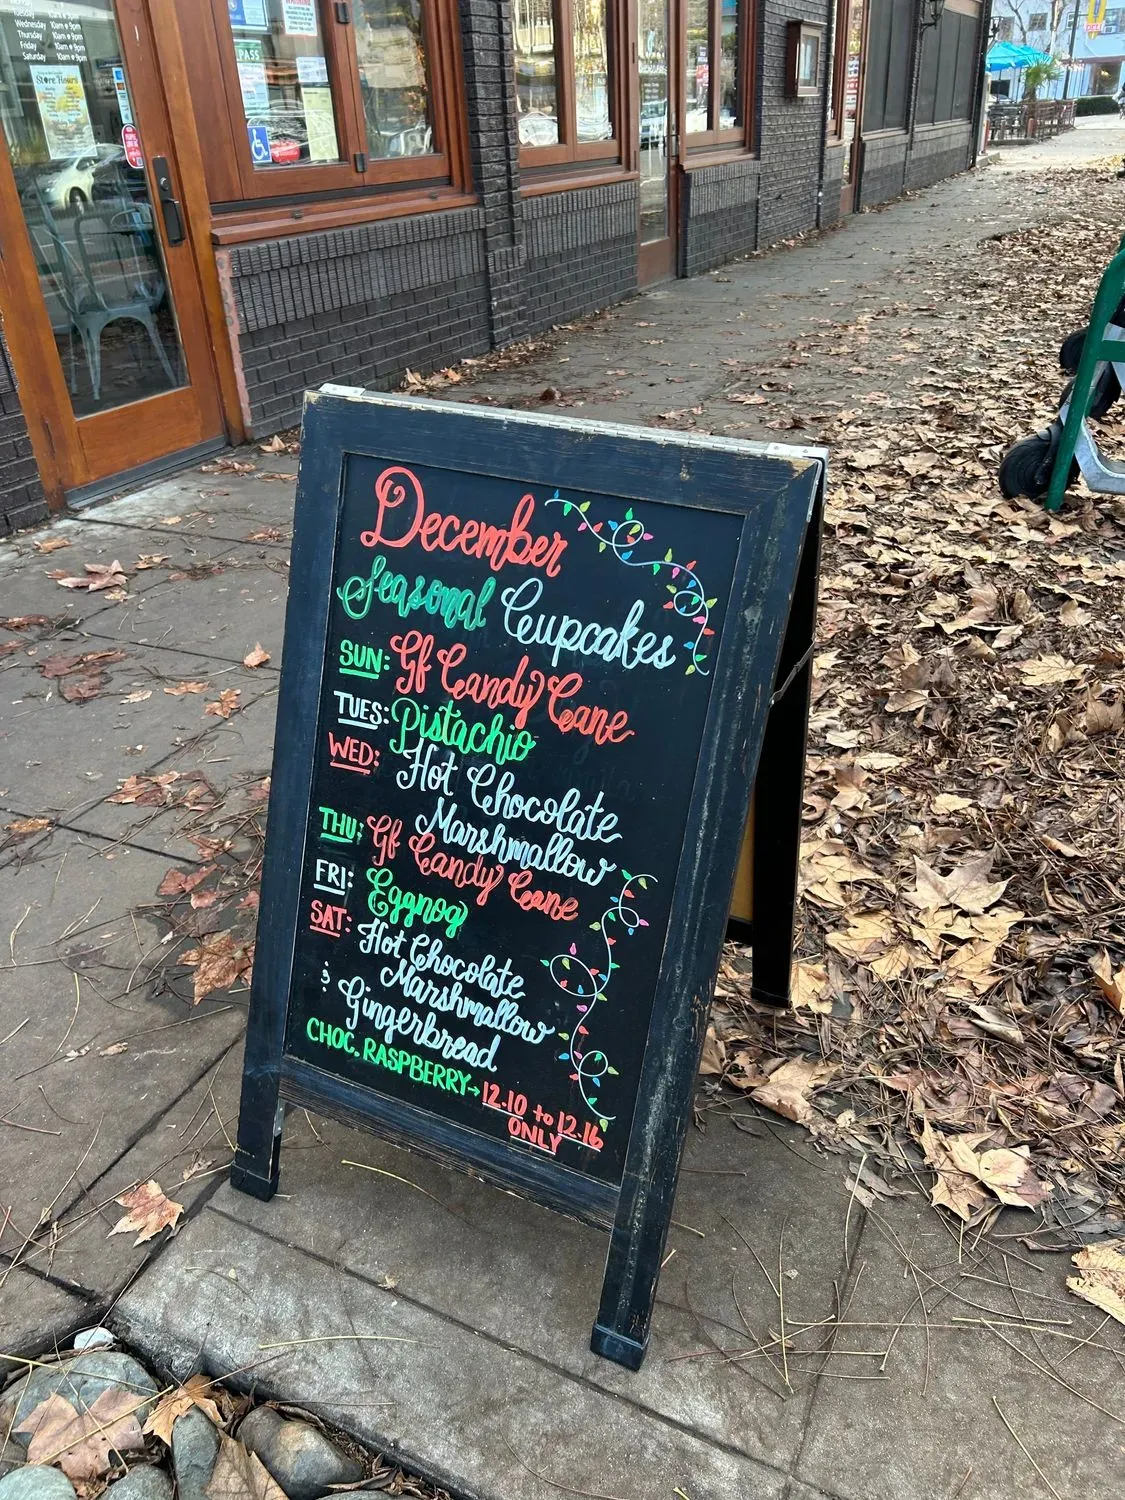 Wednesday 10am - 9pm
Thursday 10am - 9pm
Friday 10am - 9pm
Saturday 10am - 9pm
Store Hours
PASS
December
Seasonal Cupcakes
SUN: Gf Candy Cane
TUES: Pistachio
WED: Hot Chocolate
Marshmallow
THU: Gf Candy Cane
FRI: Eggnog
SAT: Hot Chocolate
Marshmallow
& Gingerbread
CHOC. RASPBERRY→ 12.10 to 12.16
ONLY